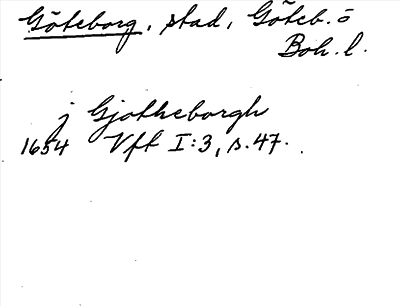 Göteborg, stad, Göteb. o
Boh. l.
j Gjotheborgh
1654 Vft I:3, s. 47.